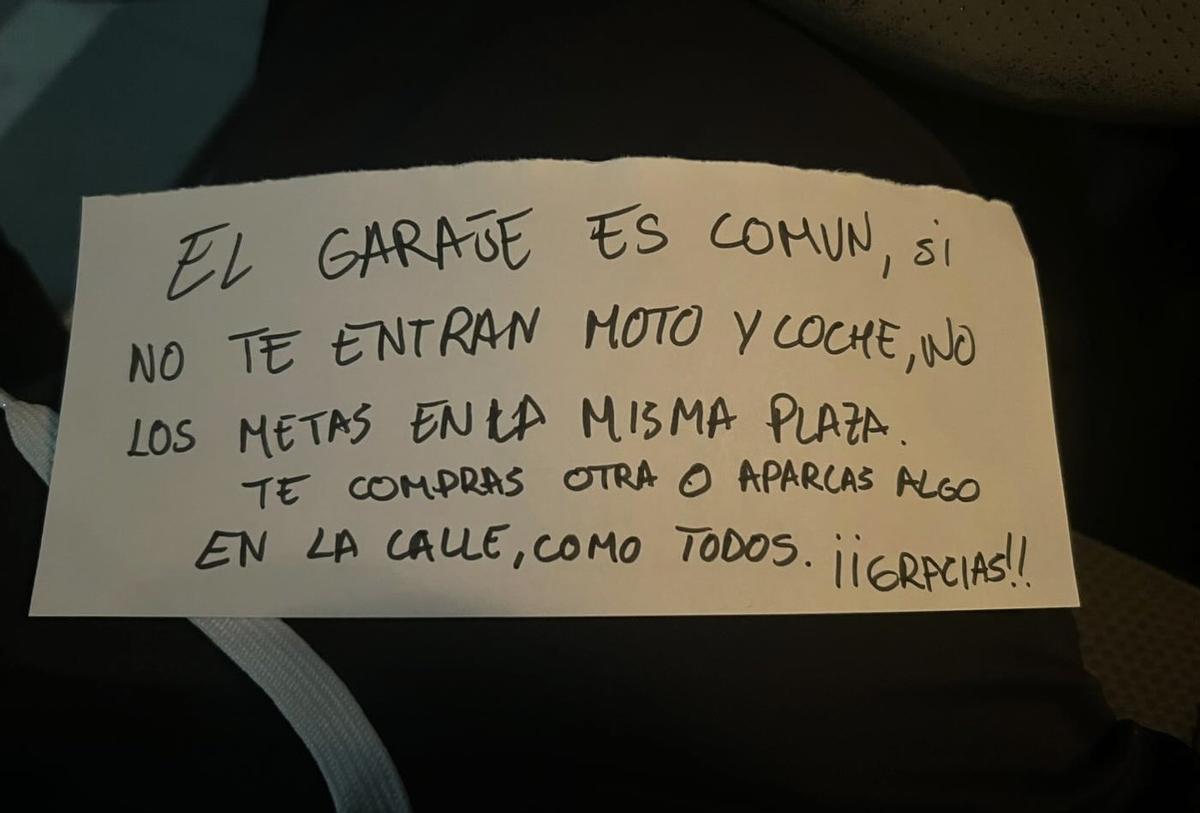 EL GARAJE ES COMUN, si
NO TE ENTRAN MOTO Y COCHE, NO
LOS METAS EN LA MISMA PLAZA.
TE COMPRAS OTRA O APARCAS ALGO
EN LA CALLE, COMO TODOS. ¡¡GRACIAS!!